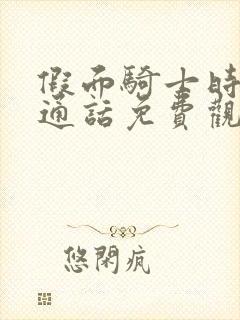 假面騎士時
通話免費觀
悠閑疯